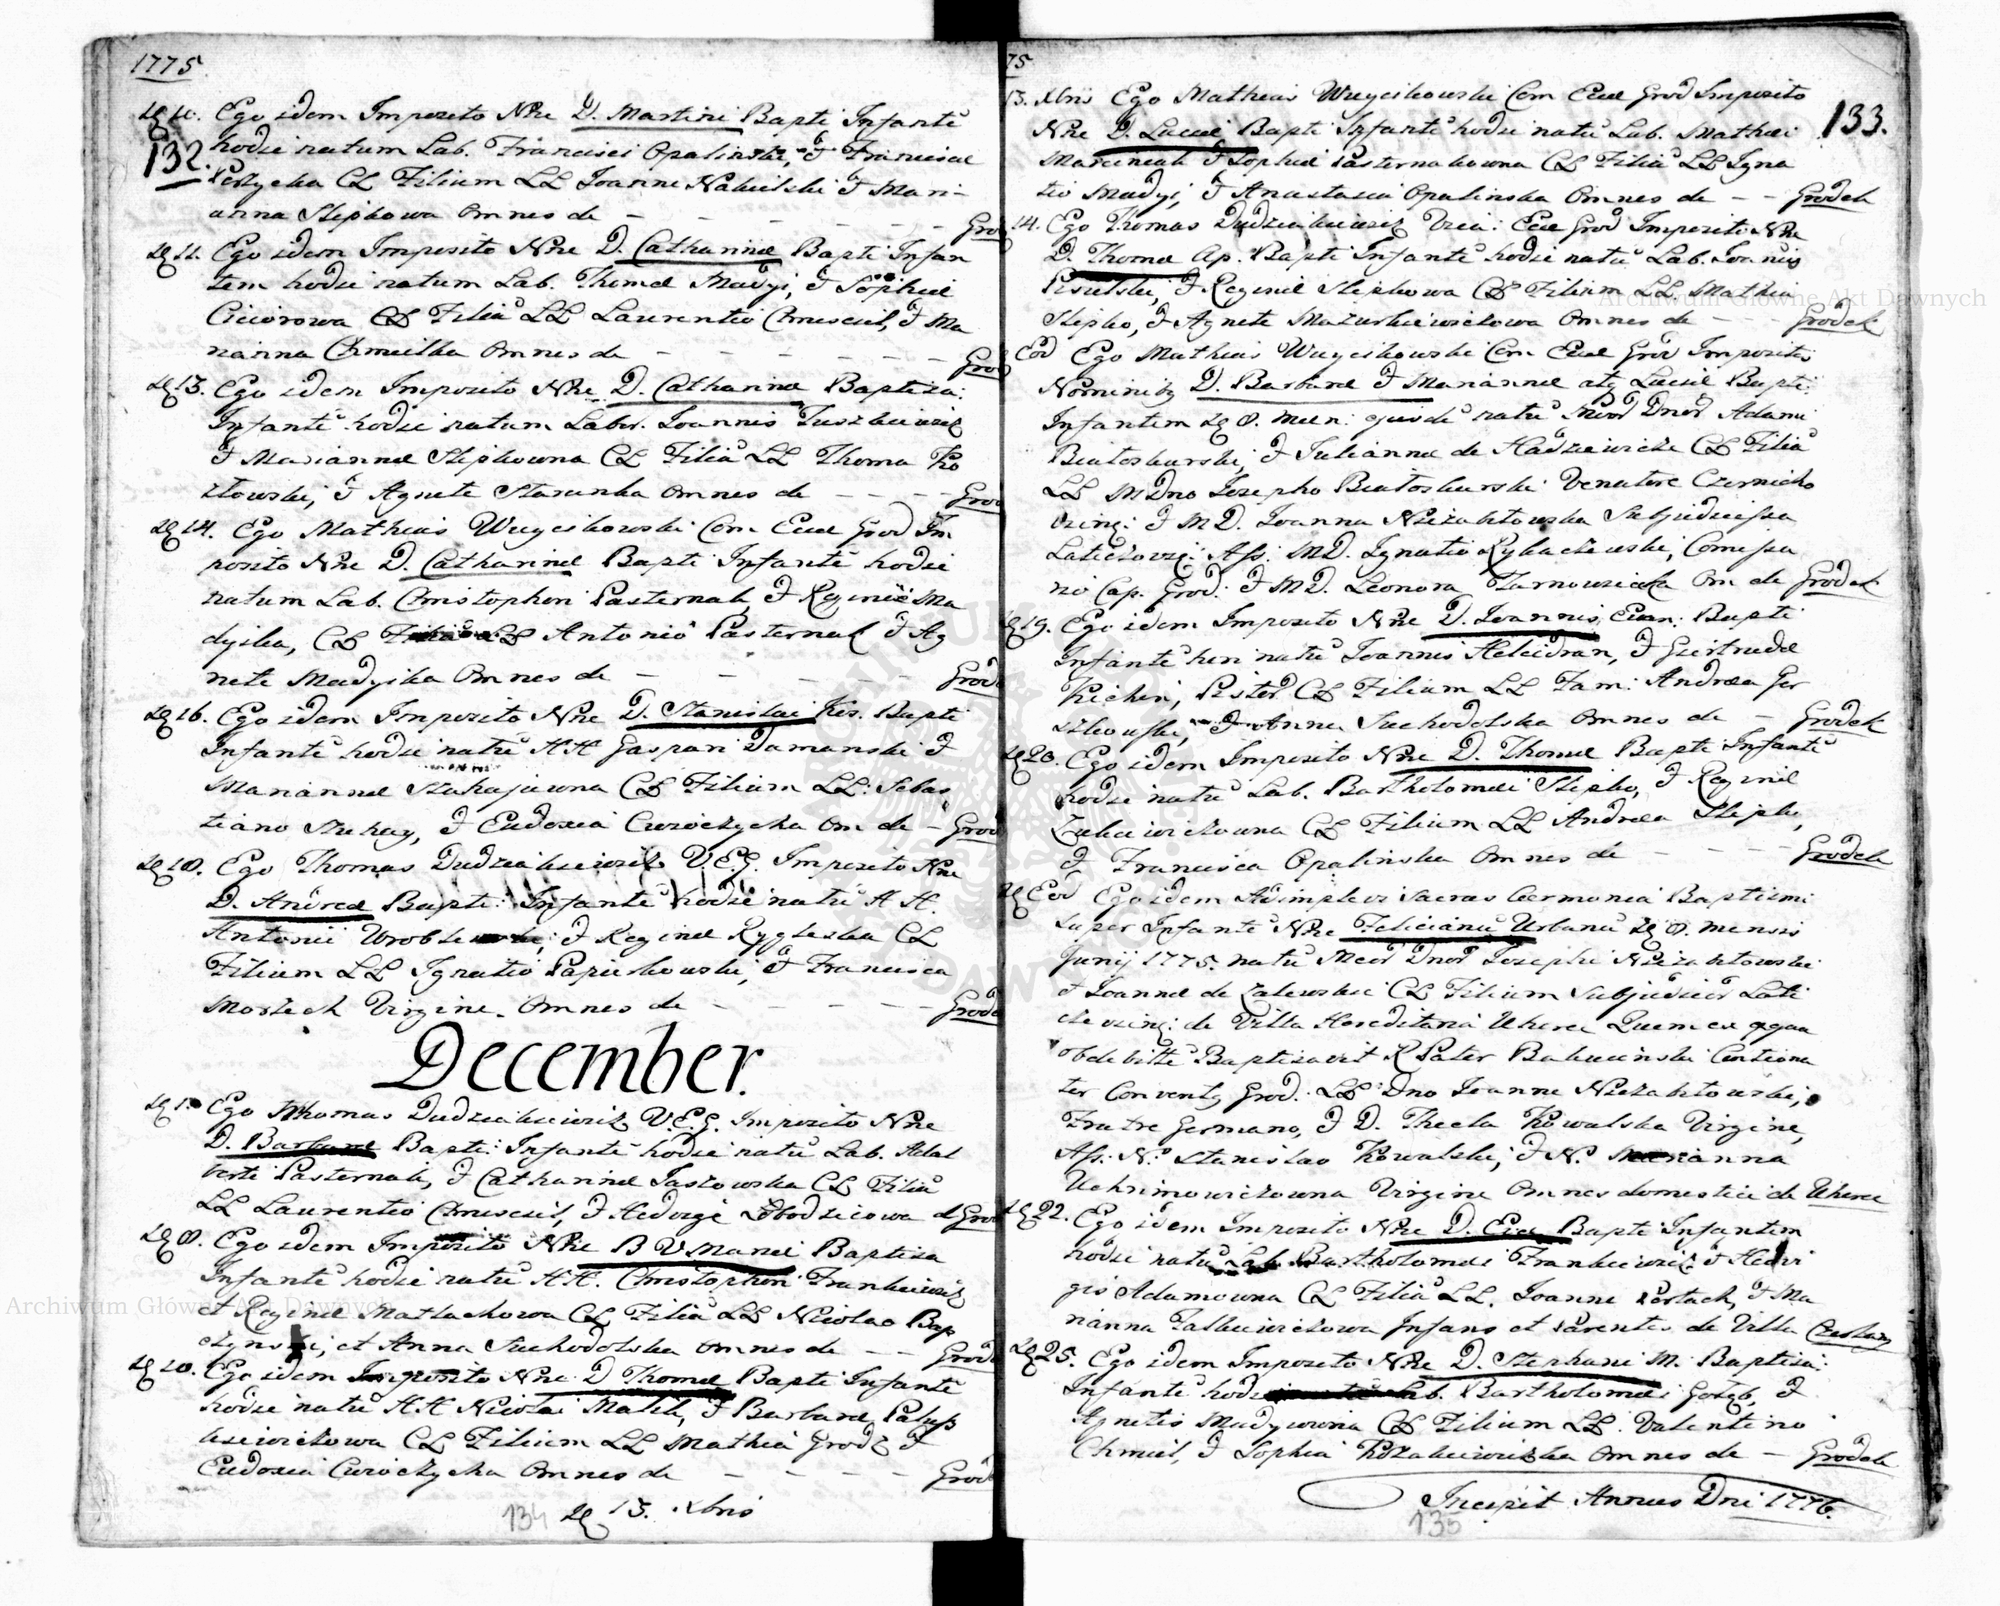 1775
132.
D 10. Ego idem Imposito Nne D. Martini Bapti Infantē
hodie natum Lab. Francisci Opalinski, & Franciscae
CL Filium LL Joanne Nakielski & Mari-
anna Slipkowa Omnes de - - - - - Grod
D 11. Ego idem Imposito Nne D. Catharinae Bapti Infan
tem hodie natum Lab. Thomae Madyj, & Sophiae
Cwiorowa CL Filiā LL Laurentio Chmiciel, & Ma
rianna Chmielka Omnes de - - - - - Grod
D 13. Ego idem Imposito Nne D. Catharinae Baptiza:
Infantē hodie natum Labor. Joannis Tuszkiewicz
& Mariannae Slipkowna CL Filiā LL Thoma Ko
złowski, & Agnete Staranka Omnes de - - - - Grod
D 14. Ego Matheus Wuycikowski Com Ecclae Grod Im
posito Nne D. Catharinae Bapti Infantē hodie
natum Lab. Christophori Pasternak, & Reginae Ma
dyska, CL Filiā LL Antonio Pasternak & Ag
nete Madyska Omnes de - - - - - Grod
D 16. Ego idem Imposito Nne D. Stanislai Kos. Bapti
Infantē hodie natū HH Gaspari Damanski &
Mariannae Szakajowna CL Filium LL: Sebas
tiano & Eudoxia Cwoczycka Om de - Grod
D 18. Ego Thomas Dudziakiewicz V.E.G. Imposito Nne
D. Andreae Bapti: Infantē hodie natū HH.
Antonii Wroblewski, & Reginae Rygleska CL
Filium LL Ignatio Papieskowski, & Francisca
Morzech Virgine. Omnes de - - - - - Grod
December.
D 1. Ego Thomas Dudziakiewicz V.E.G. Imposito Nne
D. Barbarae Bapti: Infantē hodie natū Lab. Adal
berti Pasternak, & Catharinae Jaszowska CL Filiā
LL Laurentio Chmiciel, & Hedvige Łobodzicowa d Grod
D 8. Ego idem Imposito Nne B V Mariae Baptiza
Infantē hodie natū HH. Christophori Frankiewicz
et Reginae Matlachowa CL Filiā LL Nicolao Bap
czynski, et Anna Suchodolska Omnes de - - Grod
D 10. Ego idem Imposito Nne D Thomae Bapti Infantē
hodie natū HH Nicolai Malik, & Barbarae
CL Filium LL Mathia Grodz &
Eudoxia Cwoczycka Omnes de - - - - - Grod
134 D 13. Xbris
75
133.
13. Xbris Ego Matheus Wuycikowski Com Ecclae Grod Imposito
Nne D. Luciae Bapti Infantē hodie natū Lab. Mathaei
Marciniak & Sophiae Pasternakowna CL Filiā LL Igna
tio Madyj, & Anastasia Opalinska Omnes de - - Grodek
14. Ego Thomas Dudziakiewicz Vica: Ecclae Grod Imposito Nne
D. Thomae Ap. Bapti Infantē hodie natū Lab. Joannis
Pisulski, & Reginae Slipkowa CL Filium LL Mathia
Slipko, & Agnete Mazurkiewiczowa Omnes de - - - Grodek
Eod Ego Matheus Wuycikowski Com Ecclae Grod Imposito
Nominibꝫ D. Barbarae & Mariannae atq Luciae Bapti:
Infantem D 8. men: ejusdē natū Mcor Dnor Adami
Białoskurski, & Julianna de Hadziewicze CL Filiā
LL MDno Josepho Białoskurski Venatore Czernicho
& M D. Joanna Niezabitowska Subjudicissa
Laticzov: Ass: MD. Ignatio Rybaczewski, Comissa
rio Cap. Grod: & MD. Leonora Tarnowiecka Om de Grodek
D 19. Ego idem Imposito Nne D. Joannis, Evan: Bapti
Infantē heri natū Joannis & Giertrudae
Kichin, CL Filium LL Fam: Andrea Ger
& Anna Suchodolska Omnes de - Grodek
D 20. Ego idem Imposito Nne D. Thomae Bapti Infantē
hodie natū Lab. Bartholomaei Slipko, & Reginae
CL Filium LL Andrea Slipko,
& Francisca Opalinska Omnes de - - - - Grodek
D Eod Ego idem Adimplevi sacras Ceremonia Baptismi
super Infantē Nne Felicianū Urbanū D 8. mensis
Junij 1775. natū Mcor Dnor Josephi Niezabitowski
et Joannae de Zalewskie CL Filium Subjudicis Lati
de Villa Hereditaria Uherce Quem ex aqua
obdebitē Baptizavit R Pater Bakucinski Contiona
tor Conventꝫ Grod. LL Dno Joanne Niezabitowski,
Fratre Germano, & D. Thecla Kowalska Virgine,
Ass: N. Stanislao Kowalski, & N. Marianna
Uchrimowiczowna Virgine Omnes domestici de Uherce
D 22. Ego idem Imposito Nne D. Evae Bapti Infantem
hodie natū Lab Bartholomaei Frankiewicz & Hedvi
gis Adamowna CL Filiā LL. Joanne & Ma
rianna Infans et Parentes de Villa
D 25. Ego idem Imposito Nne D. Stephani M. Baptiza:
Infantē hodie natū Lab. Bartholomaei Gołąb, &
Agnetis Madyjowna CL Filium LL. Valentino
Chmiel, & Sophia Omnes de - Grodek
Incipit Annus Dni 1776.
135
Archiwum Główne Akt Dawnych
Archiwum Główne Akt Dawnych